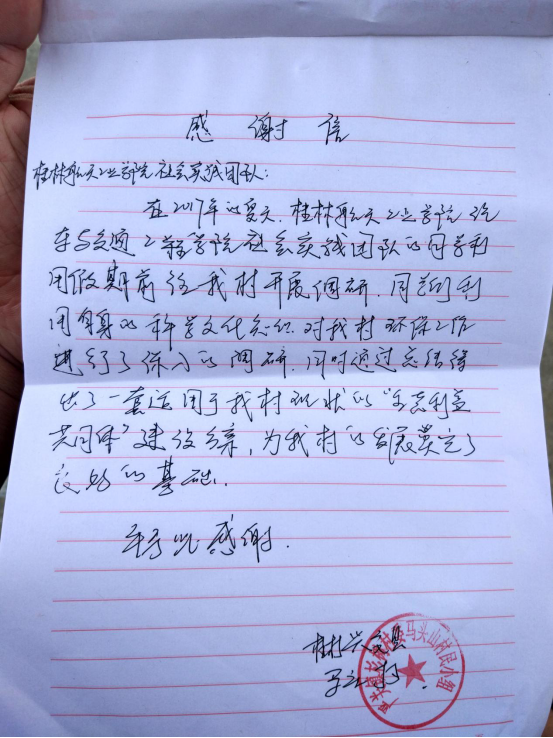 感谢信
桂林航天工业学院社会实践团队:
在2017年的夏天,桂林航天工业学院汽
车与交通工程学院社会实践团队的同学利
用假期前往我村开展调研.同学们利
用自身的科学文化知识.对我村环保工作
进行了深入的调研.同时通过总结得
出了一套适用于我村现状的"生态利益
共同体"建设方案,为我村的发展奠定了
良好的基础.
至此感谢.
桂林兴安县
马头山村民小组